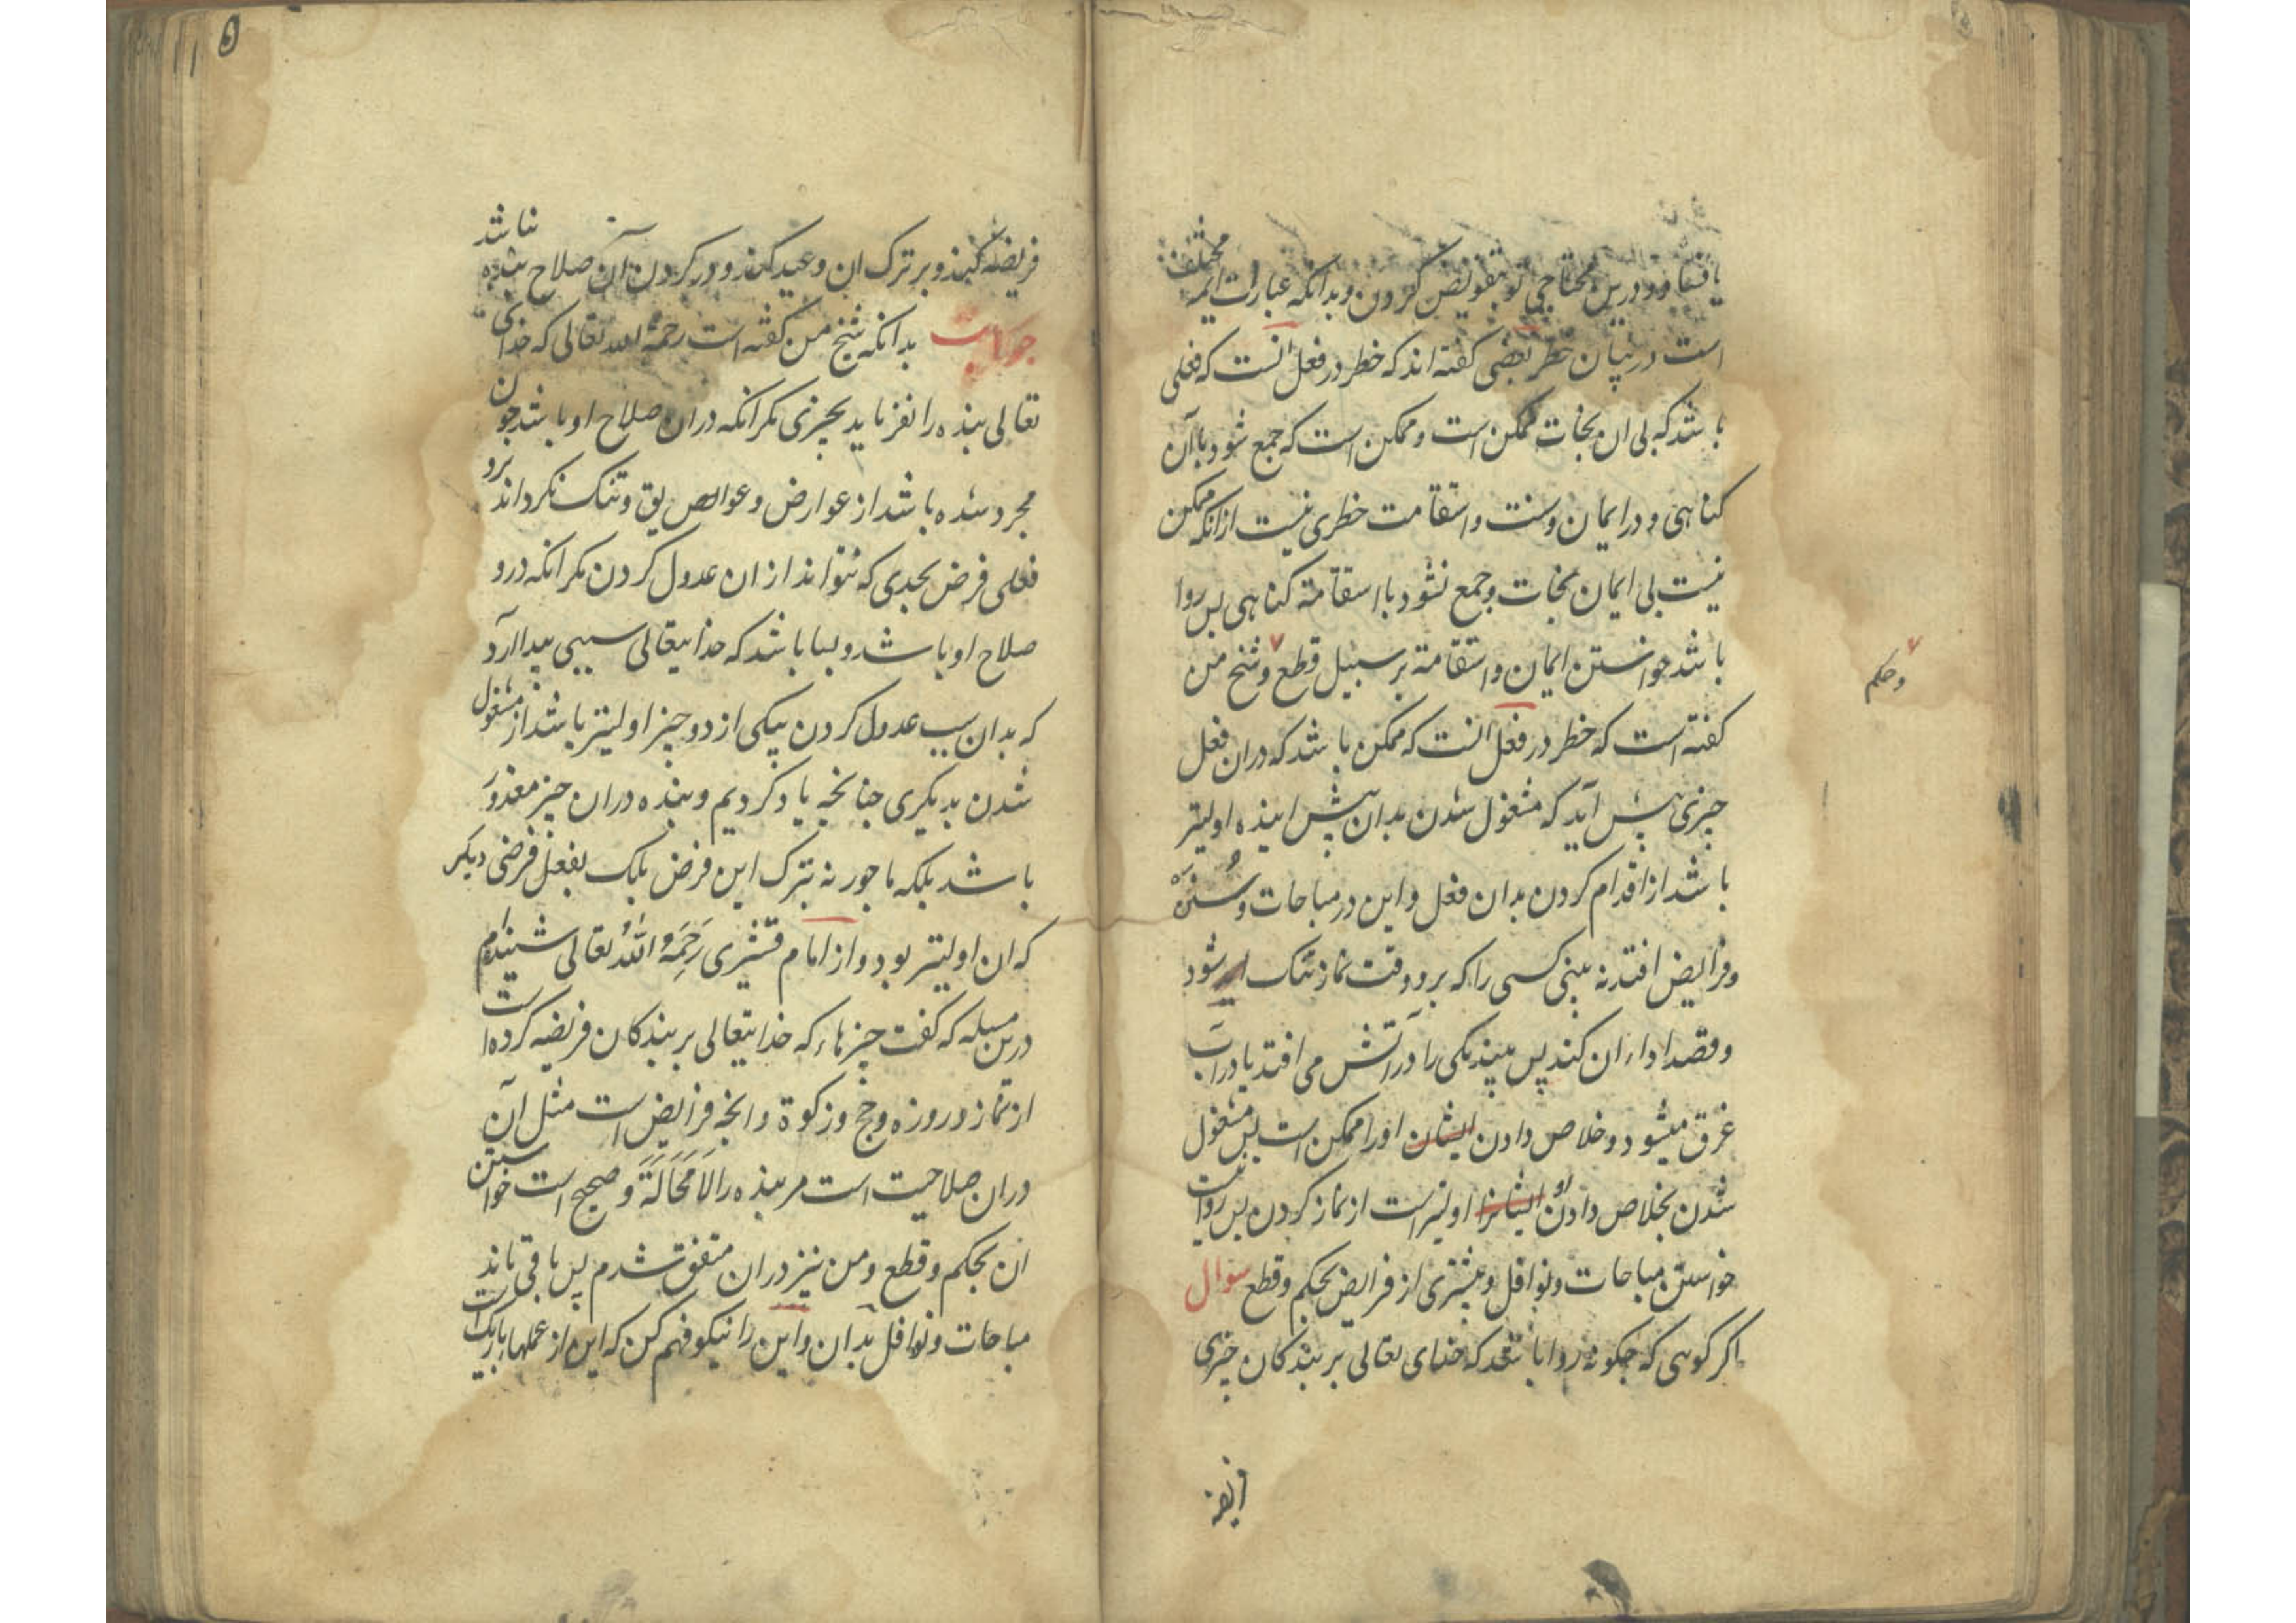 یافتقا و درین محتاجی تو بتفویض کردن و بدانکه عبارات ایمه مختلف
است در بیان خطر بعضی کفته اند که خطر در فعل انست که فعلی
باشد که بی ان نجات ممکن است و ممکن است که جمع شود با آن
کناهی و در ایمان و سنت و استقامت خطری نیست از انکه ممکن
نیست بی ایمان نجات و جمع نشود با استقامة کناهی بس روا
باشد خواستن ایمان و استقامة بر سبیل قطع و شیخ من
وحکم
کفته است که خطر در فعل انست که ممکن باشد که دران فعل
جیزی پیش آید که مشغول شدن بدان پیش اینده اولیتر
باشد از اقدام کردن بدان فعل و این در مباحات و سنن
و فرایض افتد نه بینی کسی را که برو وقت نماز تنک شود
و قصد اداء ان کند پس بیند یکی را در آتش می افتد یا در آب
غرق میشود و خلاص دادن ایشان اورا ممکن است پس مشغول
شدن بخلاص دادن او ایشانرا اولیتر است از نماز کردن پس روا نیست
خواستن مباحات و نوافل و بیشتری از فرایض بحکم و قطع سوال
اکر کوهی که جکونه روا باشد که خدای تعالی بر بندکان جیزی
فریضه کند و بر ترک ان وعید کند و در کردن آن صلاح بنده نباشد
جواب بدانکه شیخ من کفته است رحمة الله تعالی که خدای
تعالی بنده را نفرماید بجیزی مکر انکه دران صلاح او باشد جون
مجرد شده باشد از عوارض و عوایق و تنک نکرداند برو
فعلی فرض بحدی که نتواند از ان عدول کردن مکر انکه درو
صلاح او باشد و بسا باشد که خدایتعالی سببی بیدا آرد
که بدان سبب عدول کردن بیکی از دو جیز اولیتر باشد از مشغول
شدن بدیکری جنانچه یاد کردیم و بنده دران جیز معذور
باشد بلکه ماجور نه بترک این فرض بلک بفعل فرضی دیکر
که ان اولیتر بود و از امام قشیری رَحِمَهُ اللهُ تعالی شنیدم
درین مسیله که کفت جیزهاء که خدایتعالی بر بندکان فریضه کرده است
از نماز و روزه و حج و زکوة و انچه فرایض است مثل آن
دران صلاحیت است مر بنده را لَامَحَالَةَ و صحیح است خواستن
ان بحکم و قطع و من نیز دران متفق شدم پس باقی ماند
مباحات و نوافل بدان و این را نیکو فهم کن که این از عملهاء باریک است